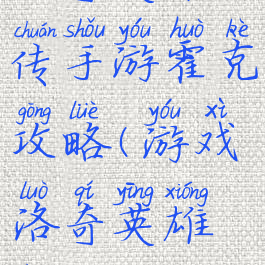 chuán shǒu yóu huò kè
传手游霍克
gōng lüè yóu xì
攻略(游戏
luò qí yīng xióng
洛奇英雄